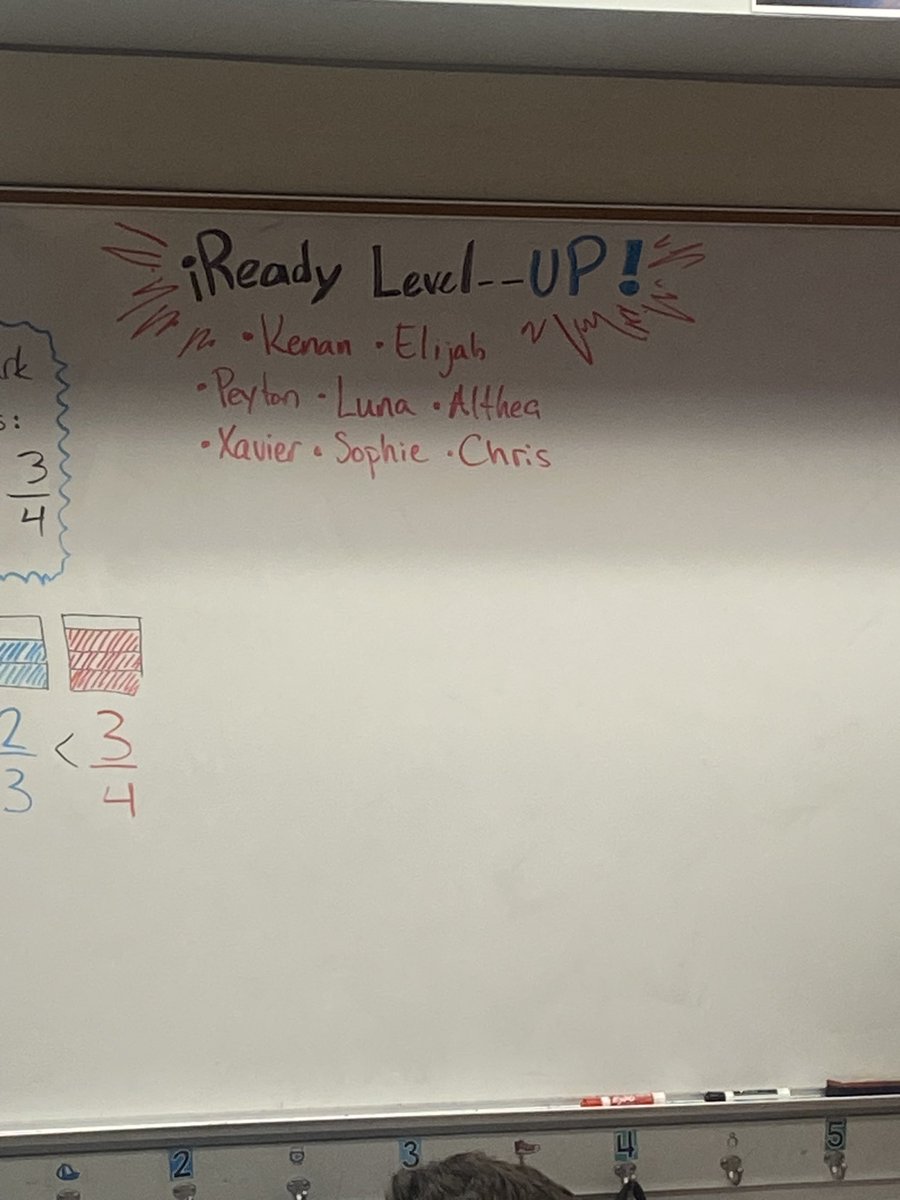 iReady Level--UP!
• Kenan • Elijah
• Peyton • Luna • Althea
• Xavier • Sophie • Chris
rk
s:
3
4
2 < 3
3 4
EXPO
2 3 4 5